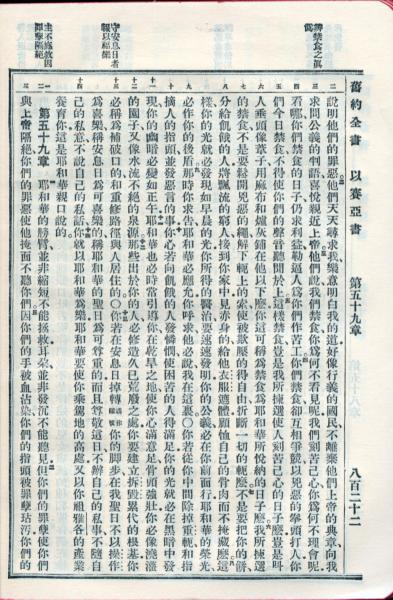 舊約全書　以賽亞書　第五十九章　八百二十二
說明他們的罪惡他們天天尋求我樂意明白我的道好像行義的國民不離棄他們上帝的典章向我
求問公義的判語喜悅親近上帝他們說我們禁食你爲何不看見呢我們刻苦己心你爲何不理會呢
看哪你們禁食的日子仍求利益勒逼人爲你們作苦工你們禁食卻互相爭競以兇惡的拳頭打人你
們今日禁食不得使你們的聲音聽聞於上這樣禁食豈是我所揀選使人刻苦己心的日子麼豈是叫
人垂頭像葦子用麻布和爐灰鋪在他以下麼你這可稱爲禁食爲耶和華所悅納的日子麼我所揀選
的禁食不是要鬆開兇惡的繩解下軛上的索使被欺壓的得自由折斷一切的軛麼不是要把你的餅
分給飢餓的人將飄流的窮人接到你家中見赤身的給他衣服遮體顧恤自己的骨肉而不掩藏麼這
樣你的光就必發現如早晨的光你所得的醫治要速速發明你的公義必在你前面行耶和華的榮光
必作你的後盾那時你求告耶和華必應允你呼求他必說我在這裏〇你若從你中間除掉重軛和指
摘人的指頭並發惡言的事你心若向飢餓的人發憐憫使困苦的人得滿足你的光就必在黑暗中發
現你的幽暗必變如正午耶和華也必時常引導你在乾旱之地使你心滿意足骨頭強壯你必像澆灌
的園子又像水流不絕的泉源那些出於你的人必修造久已荒廢之處你要建立拆毀累代的根基你
必稱爲補破口的和重修路徑與人居住的〇你若在安息日掉轉你的脚步在我聖日不以操作
爲喜樂稱安息日爲可喜樂的稱耶和華的聖日爲可尊重的而且尊敬這日不辦自己的私事不隨自
己的私意不說自己的私話你就以耶和華爲樂耶和華要使你乘駕地的高處又以你祖雅各的產業
養育你這是耶和華親口說的
第五十九章　耶和華的膀臂並非縮短不能拯救耳朶並非發沉不能聽見但你們的罪孽使你們
與上帝隔絕你們的罪惡使他掩面不聽你們因你們的手被血沾染你們的指頭被罪孽玷汚你們的
辨禁食之眞
僞
守安息日者
賜以福樂
主不施救因
罪孽隔絕